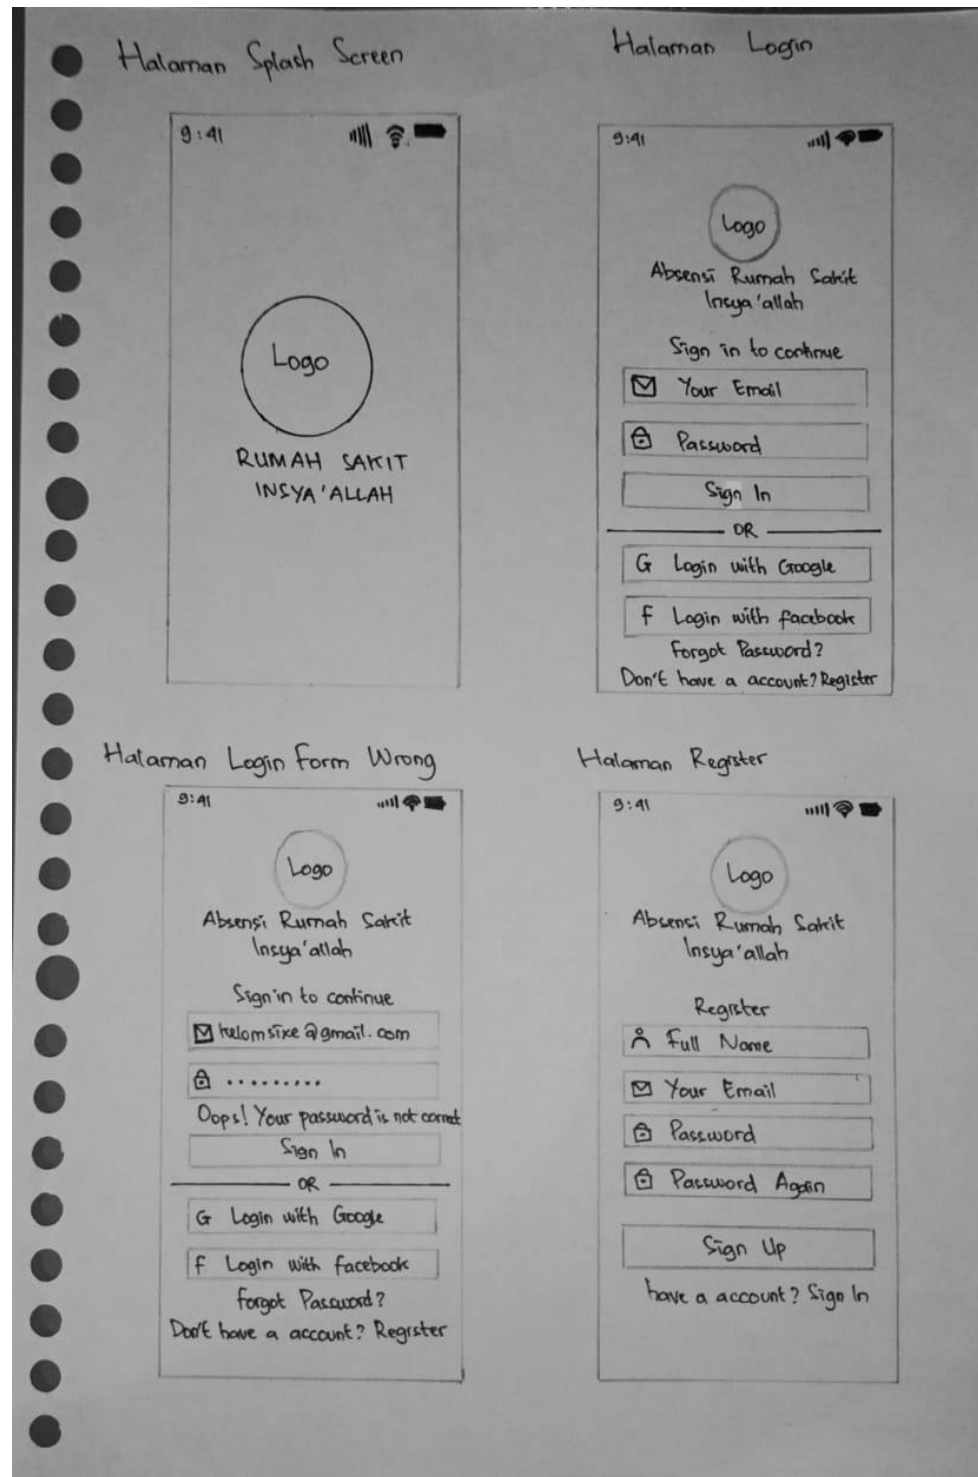 Halaman Splash Screen
9:41
Logo
RUMAH SAKIT
INSYA'ALLAH
Halaman Login
9:41
Logo
Absensi Rumah Sakit
Insya'allah
Sign in to continue
Your Email
Password
Sign In
OR
G Login with Google
f Login with facebook
Forgot Password?
Don't have a account? Register
Halaman Login Form Wrong
9:41
Logo
Absensi Rumah Sakit
Insya'allah
Sign in to continue
kelomsixe@gmail.com
.........
Oops! Your password is not correct
Sign In
OR
G Login with Google
f Login with facebook
Forgot Password?
Don't have a account? Register
Halaman Register
9:41
Logo
Absensi Rumah Sakit
Insya'allah
Register
Full Name
Your Email
Password
Password Again
Sign Up
have a account? Sign In